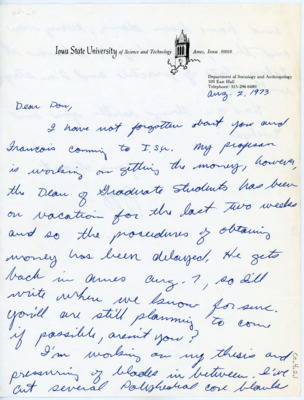 Iowa State University of Science and Technology Ames, Iowa 50010
Department of Sociology and Anthropology
103 East Hall
Telephone: 515-294-6480
Aug. 2, 1973
Dear Don,
I have not forgotten about you and
Francois coming to I.S.U. My professor
is working on getting the money, however,
the Dean of Graduate Students has been
on vacation for the last two weeks
and so the procedures of obtaining
money has been delayed. He gets
back in Ames Aug. 7, so I'll
write when we know for sure.
You'll are still planning to come
if possible, aren't you?
I'm working on my thesis and
pressuring of blades in between. I've
cut several Polyhedral core blanks